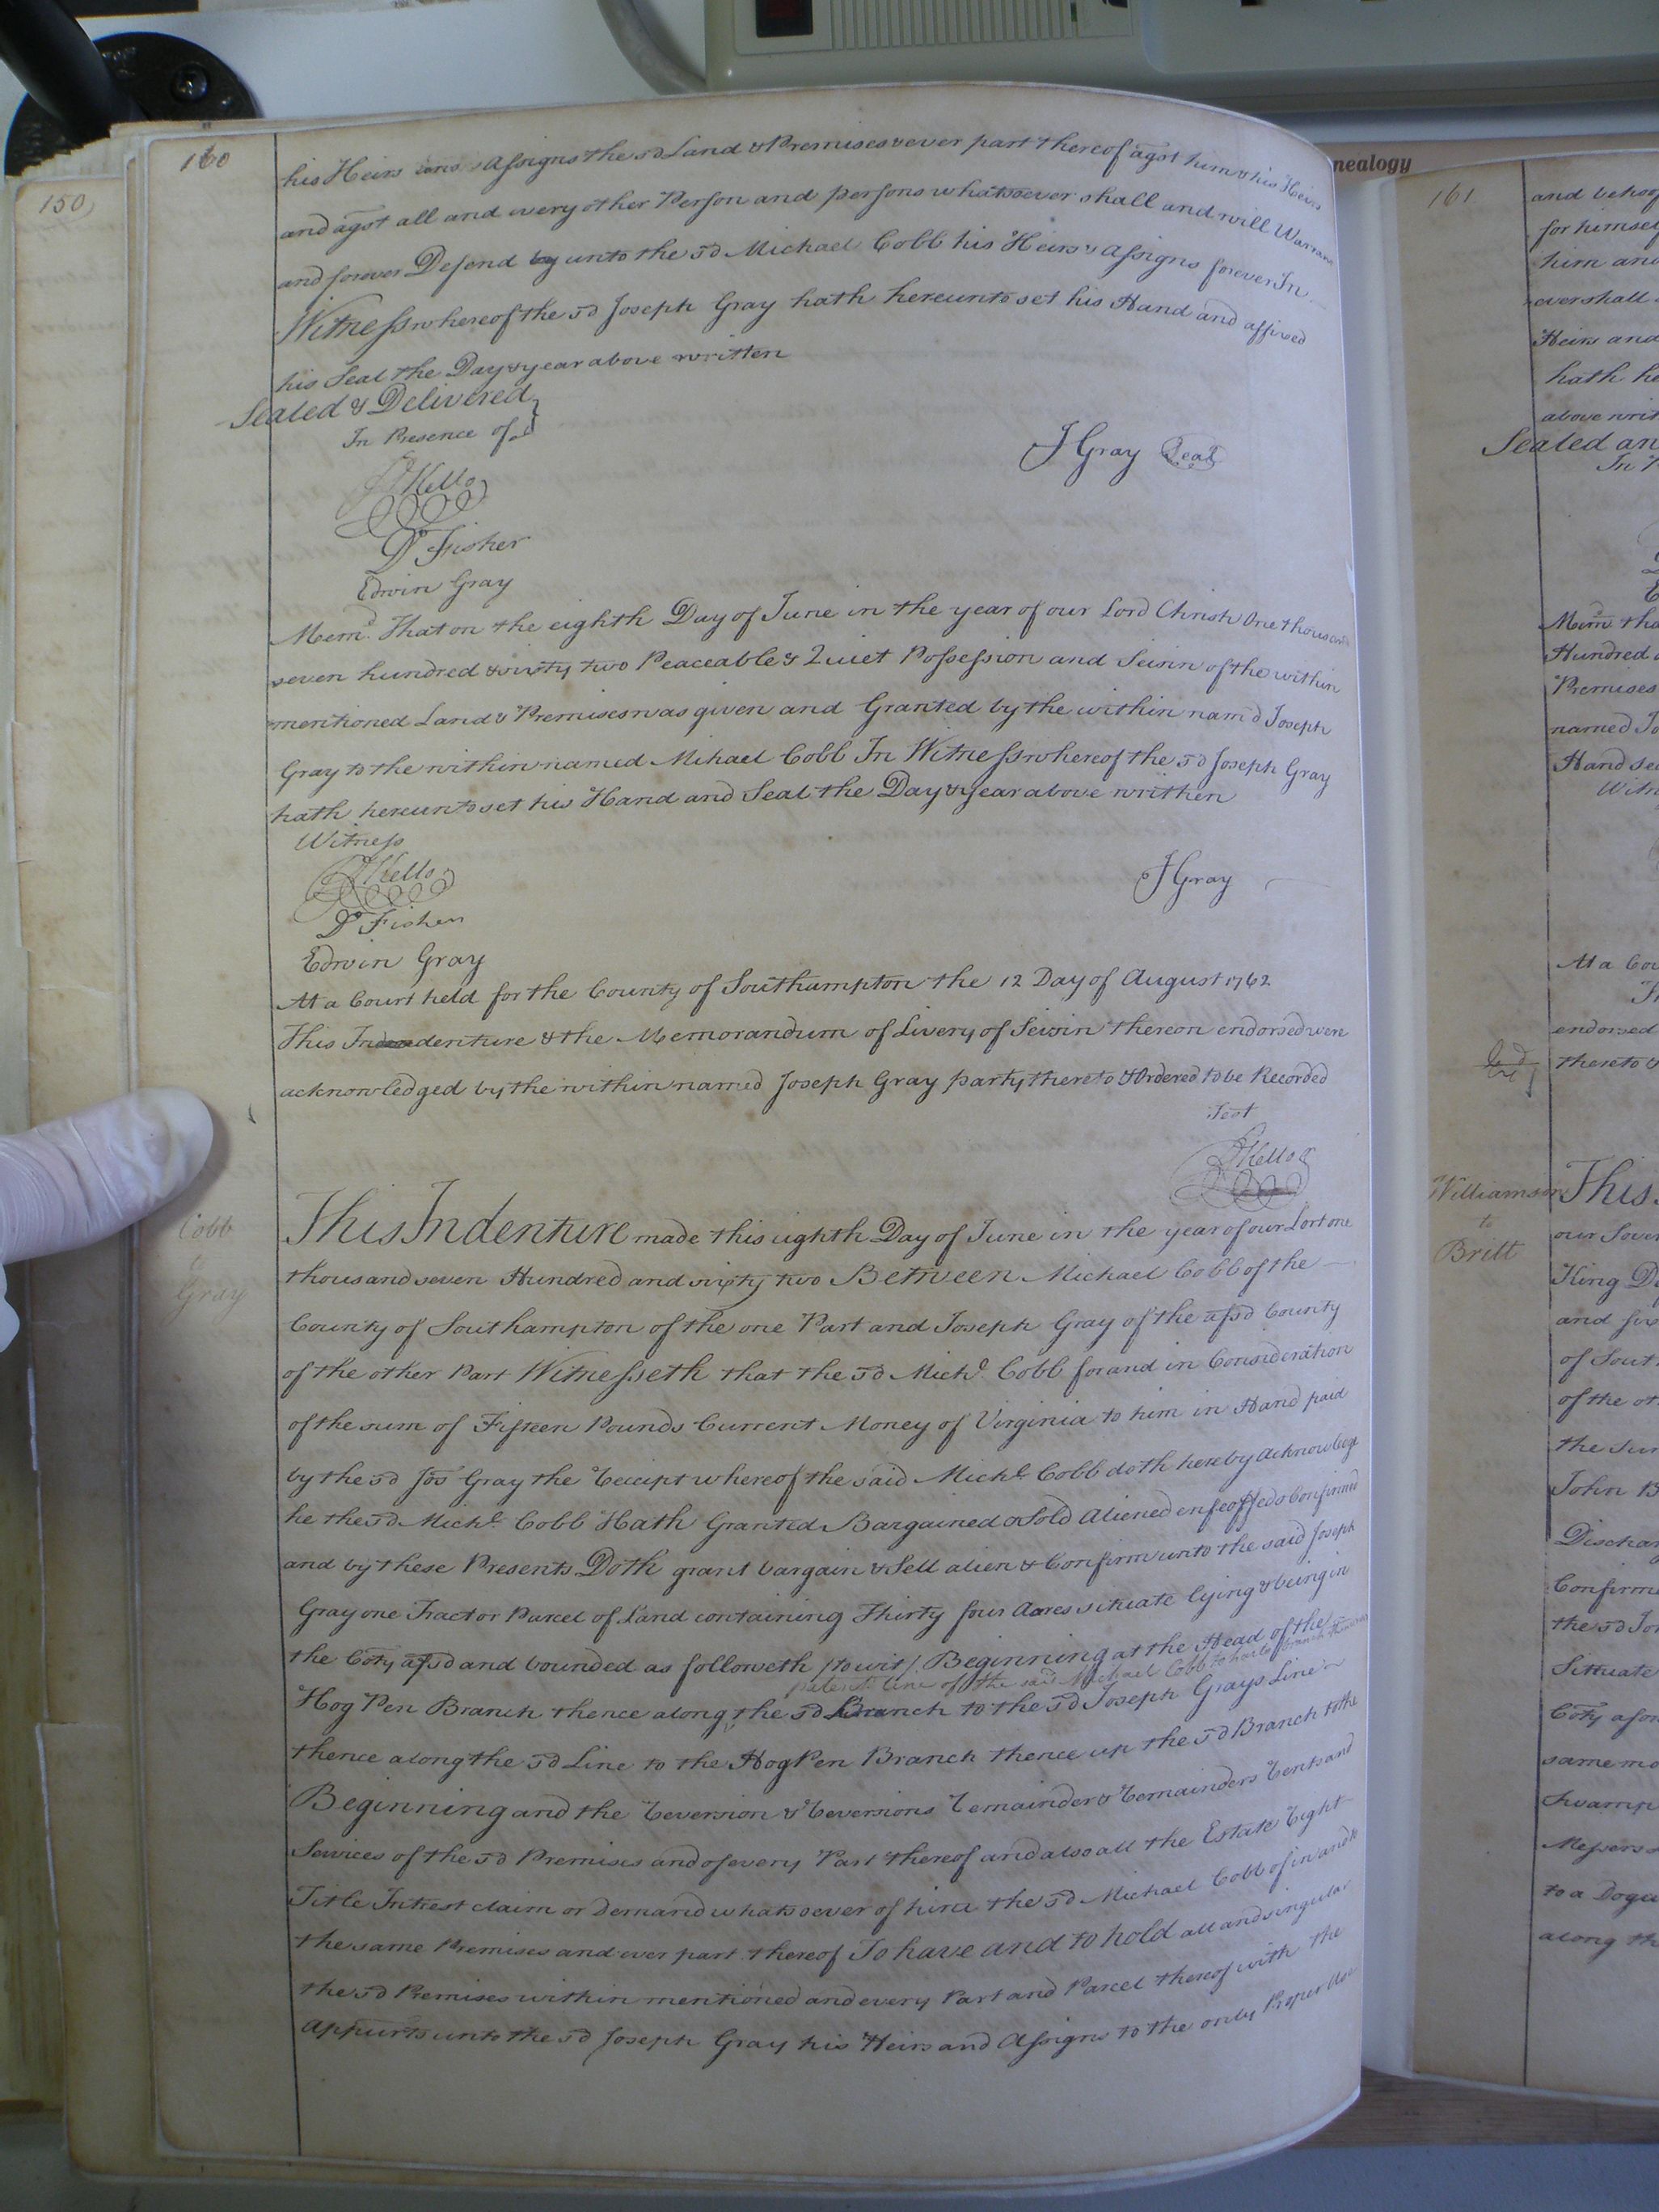 nealogy
150
160
his Heirs and Assigns the sd Land & Premises & ever part thereof agst him & his Heirs
and agst all and every other Person and persons whatsoever shall and will Warrant
and forever Defend by unto the sd Michael Cobb his Heirs & Assigns forever In
Witness whereof the sd Joseph Gray hath hereunto set his Hand and affixed
his Seal the Day & year above written
Sealed & Delivered
In Presence of
J Gray Seal
Kello
Dl Fisher
Edwin Gray
Memd. That on the eighth Day of June in the year of our Lord Christ One thousand
seven hundred & sixty two Peaceable & Quiet Possession and Seisin of the within
mentioned Land & Premises was given and Granted by the within nam'd Joseph
Gray to the within named Mihael Cobb In Witness whereof the sd Joseph Gray
hath hereunto set his Hand and Seal the Day & year above writhen
Witness
J Gray
Kello
Dl Fisher
Edwin Gray
At a Court held for the County of Southampton the 12 Day of August 1762
This Indenture & the Memorandum of Livery of Seisin thereon endorsed were
acknowledged by the within named Joseph Gray party thereto & Ordered to be Recorded
Test
Kello
Cobb
to
Gray
This Indenture made this eighth Day of June in the year of our Lort one
thousand seven Hundred and sixty two Between Michael Cobb of the
County of Southampton of the one Part and Joseph Gray of the afsd County
of the other Part Witnesseth that the sd Michl Cobb for and in Consideration
of the sum of Fifteen Pounds Current Money of Virginia to him in Hand paid
by the sd Jos Gray the Receipt whereof the said Michl Cobb doth hereby Acknowledge
he the sd Michl Cobb Hath Granted Bargained & Sold Aliened enfeoffed & Confirmed
and by these Presents Doth grant bargain & Sell alien & Confirm unto the said Joseph
Gray one Tract or Parcel of Land containing Thirty four Acres situate lying & being in
the Coty afsd and bounded as followeth /towit/ Beginning at the Head of the
patent line of the said Michael Cobb to branch thence
Hog Pen Branch thence along the sd Branch to the sd Joseph Grays Line
thence along the sd Line to the Hog Pen Branch thence up the sd Branch to the
Beginning and the Reversion & Reversions Remainder & Remainders Rents and
Services of the sd Premises and of every Part thereof and also all the Estate Right
Title Intrest claim or Demand whatsoever of him the sd Michael Cobb of in and to
the same Premises and ever part thereof To have and to hold all and singular
the sd Premises within mentioned and every Part and Parcel thereof with the
Appurts unto the sd Joseph Gray his Heirs and Assigns to the only Proper Use
161
and behoof
for himself
him and
ever shall
Heirs and
hath he
above writ
Sealed an
In P
Mem tha
Hundred
Premises
named Jo
Hand sea
Witn
At a Cou
endorsed
thereto
Williamson
to
Britt
This
our Sover
King De
and six
of South
of the ot
the Sum
John B
Dischar
Confirm
the sd Jo
Situate
Coty afor
same mo
Swamp
Messers
to a Dogw
along th